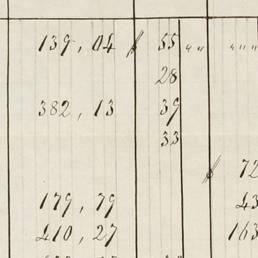 139, 04 $ 55 " " " " "
28
382, 13 39
33
$ 72
179, 79 43
410, 27 163